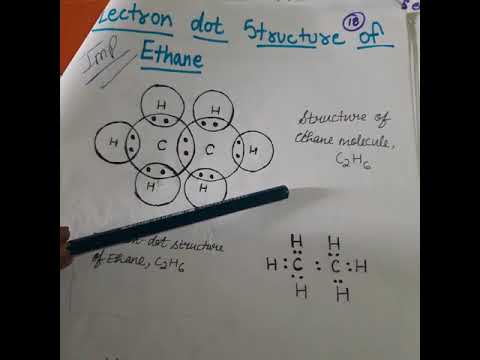 lectron dot Structure of
18
Imp
Ethane
H H
H C C H
H H
Structure of
ethane molecule,
C2H6
n-dot structure
of Ethane, C2H6
H H
H : C : C : H
H H